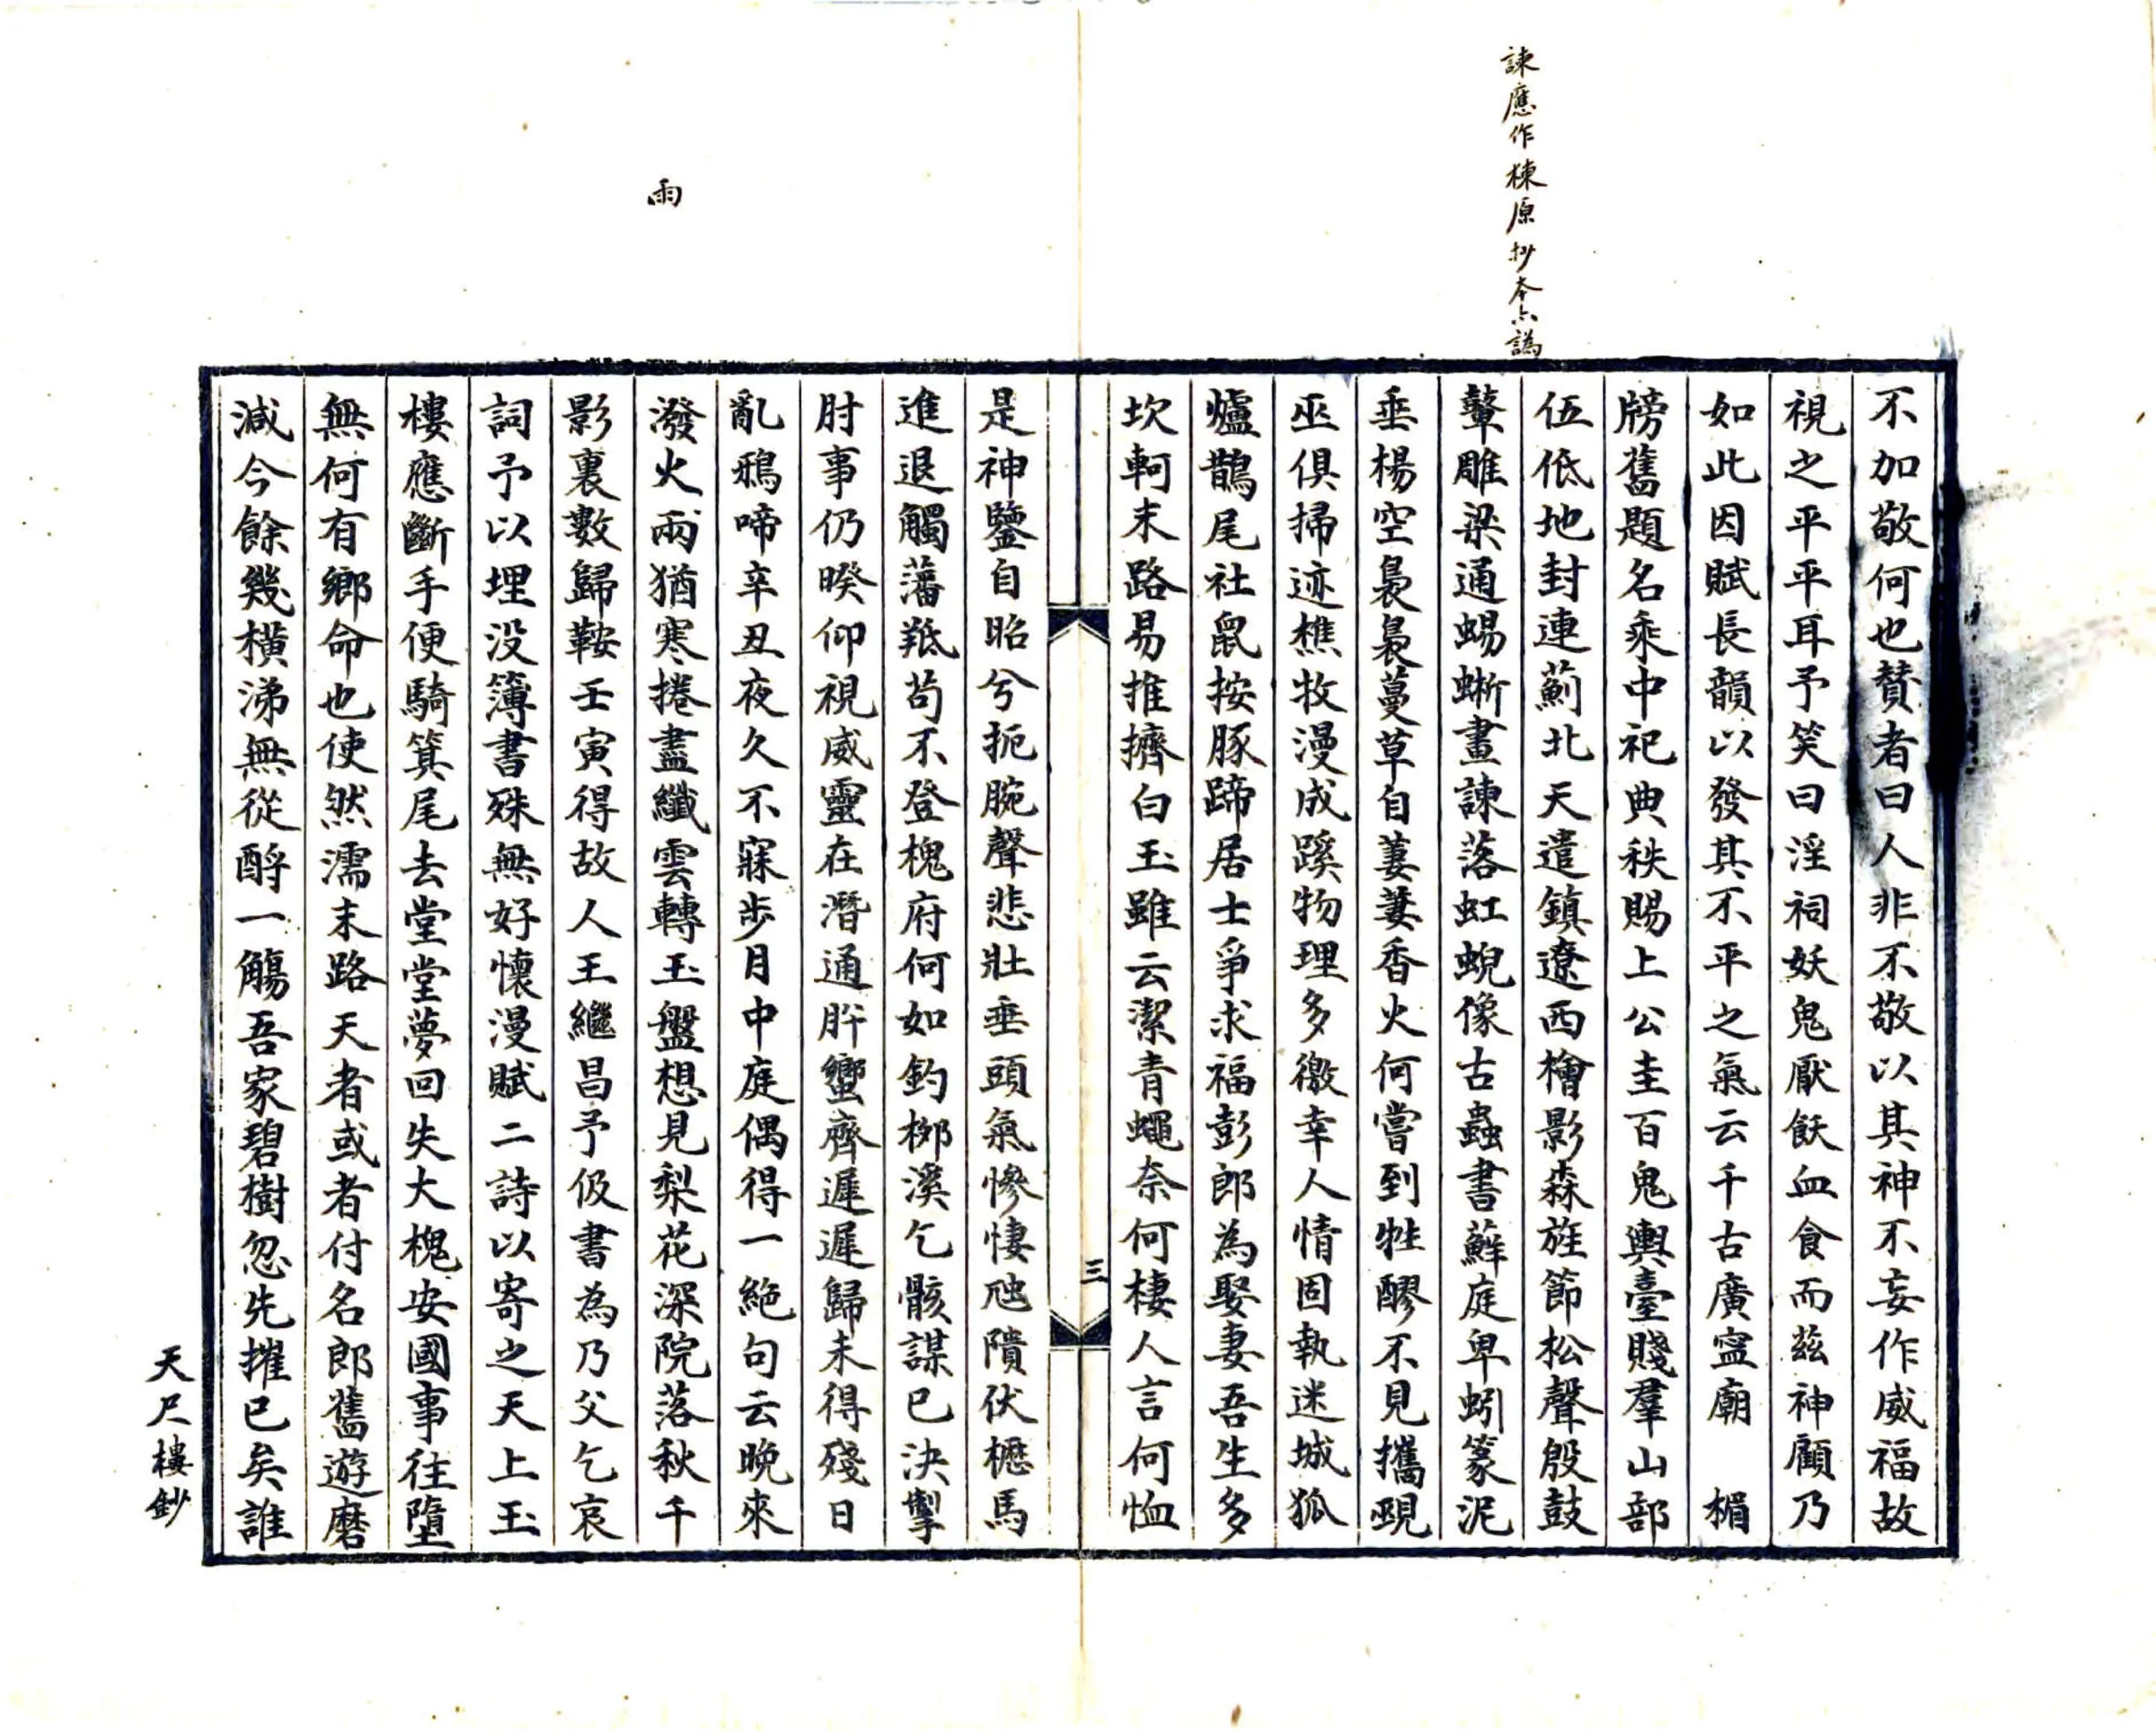 諫應作棟原抄本亦譌
不加敬何也贊者曰人非不敬以其神不妄作威福故
視之平平耳予笑曰淫祠妖鬼厭飫血食而茲神顧乃
如此因賦長韻以發其不平之氣云千古廣寍廟　楣
牓舊題名乘中祀典秩賜上公圭百鬼輿臺賤羣山部
伍低地封連薊北天遣鎮遼西檜影森旌節松聲殷鼓
鼙雕梁通蜴蜥畫諫落虹蜺像古蟲書蘚庭卑蚓篆泥
垂楊空裊裊蔓草自萋萋香火何嘗到牲醪不見攜覡
巫俱掃迹樵牧漫成蹊物理多徼幸人情固執迷城狐
爐鵲尾社鼠按豚蹄居士爭求福彭郎為娶妻吾生多
坎軻末路易推擠白玉雖云潔青蠅奈何棲人言何恤
三
是神鑒自昭兮扼腕聲悲壯垂頭氣慘悽虺隤伏櫪馬
進退觸藩羝苟不登槐府何如釣桞溪乞骸謀已決掣
肘事仍暌仰視威靈在潛通肸蠁齊遲遲歸未得殘日
亂鴉啼辛丑夜久不寐步月中庭偶得一絕句云晚來
雨
潑火兩猶寒捲盡纖雲轉玉盤想見梨花深院落秋千
影裏數歸鞍壬寅得故人王繼昌予伋書為乃父乞哀
詞予以埋没簿書殊無好懷漫賦二詩以寄之天上玉
樓應斷手便騎箕尾去堂堂夢回失大槐安國事往墮
無何有鄉命也使然濡末路天者或者付名郎舊遊磨
減今餘幾橫涕無從酹一觴吾家碧樹忽先摧已矣誰
天尺樓鈔